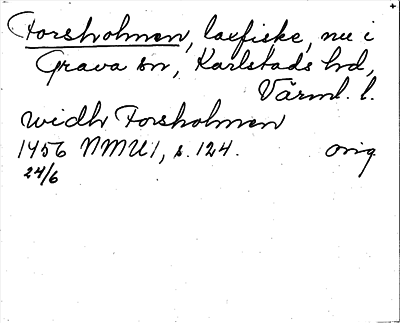 Forsholmen, laxfiske, nu i
Grava sn, Karlstads hd,
Värml. l.
widh Forsholmen
1456 NMU1, s. 124. orig
24/6